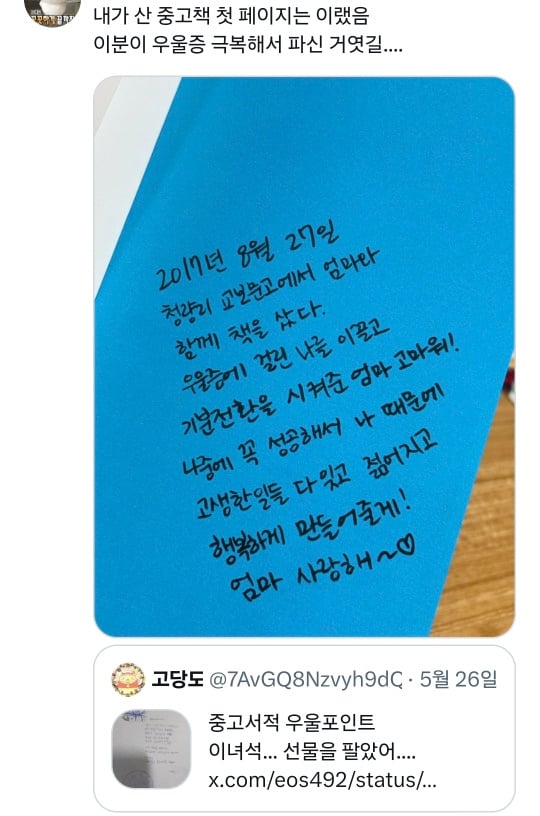 내가 산 중고책 첫 페이지는 이랬음
이분이 우울증 극복해서 파신 거엿길....
2017년 8월 27일
청량리 교보문고에서 엄마랑
함께 책을 샀다.
우울증에 걸린 나를 이끌고
기분전환을 시켜준 엄마 고마워!
나중에 꼭 성공해서 나 때문에
고생한일들 다 잊고 젊어지고
행복하게 만들어줄게!
엄마 사랑해~♡
고당도 @7AvGQ8Nzvyh9dC · 5월 26일
중고서적 우울포인트
이녀석... 선물을 팔았어....
x.com/eos492/status/...